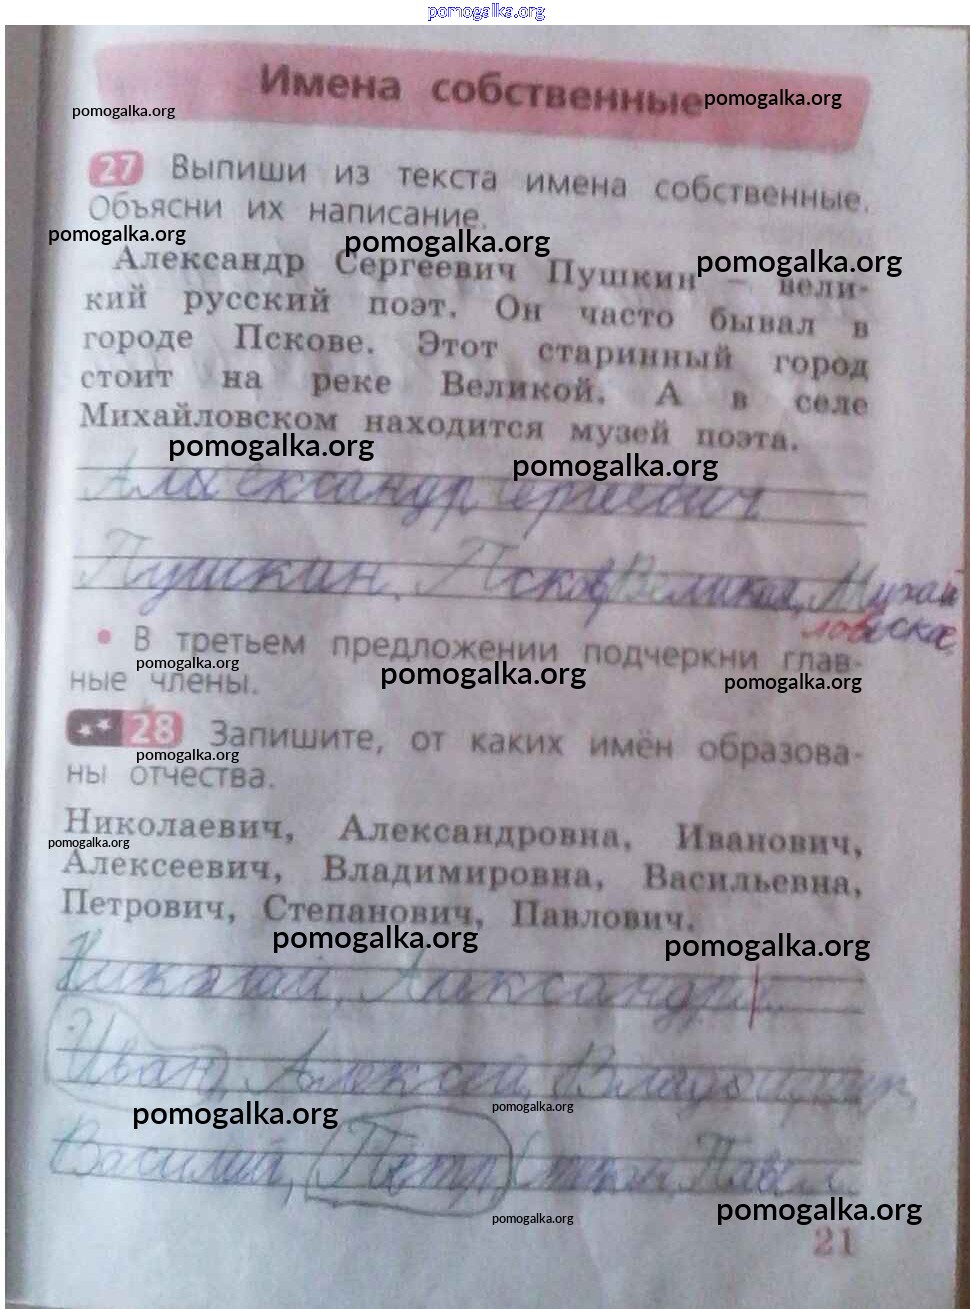 pomogalka.org
Имена собственные
pomogalka.org
pomogalka.org
27 Выпиши из текста имена собственные.
Объясни их написание.
pomogalka.org
pomogalka.org
pomogalka.org
Александр Сергеевич Пушкин – вели-
кий русский поэт. Он часто бывал в
городе Пскове. Этот старинный город
стоит на реке Великой. А в селе
Михайловском находится музей поэта.
pomogalka.org
pomogalka.org
Александр Сергеевич
Пушкин, Псков, Великая, Михай
ловское.
• В третьем предложении подчеркни глав-
ные члены.
pomogalka.org
pomogalka.org
pomogalka.org
28 Запишите, от каких имён образова-
ны отчества.
pomogalka.org
Николаевич, Александровна, Иванович,
Алексеевич, Владимировна, Васильевна,
Петрович, Степанович, Павлович.
pomogalka.org
pomogalka.org
pomogalka.org
Николай, Александр
Иван, Алексей, Владимир,
pomogalka.org
pomogalka.org
Василий, Петр, Степан, Павел.
pomogalka.org
pomogalka.org
21